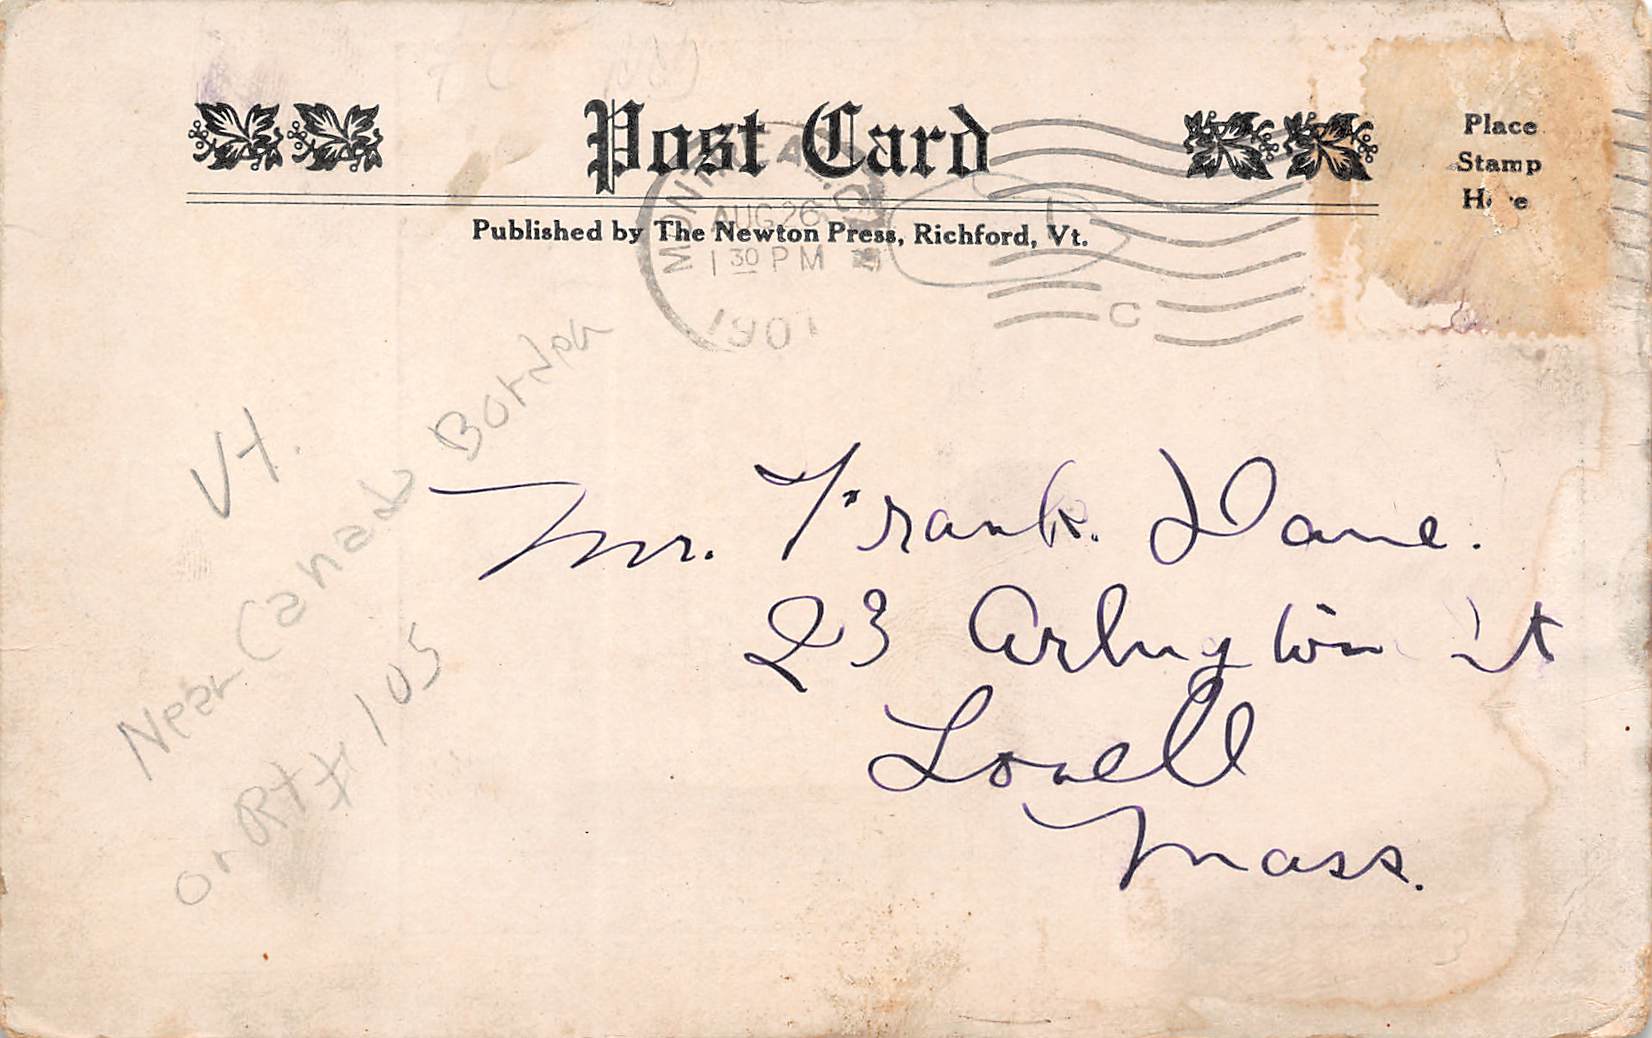 Post Card
Place
Stamp
Here
Published by The Newton Press, Richford, Vt.
MONTREAL
AUG 26
1 30 PM
1907
C
Vt.
Near Canada Border
on Rt # 105
Mr. Frank. Dane.
23 Arlington St
Lowell
Mass.